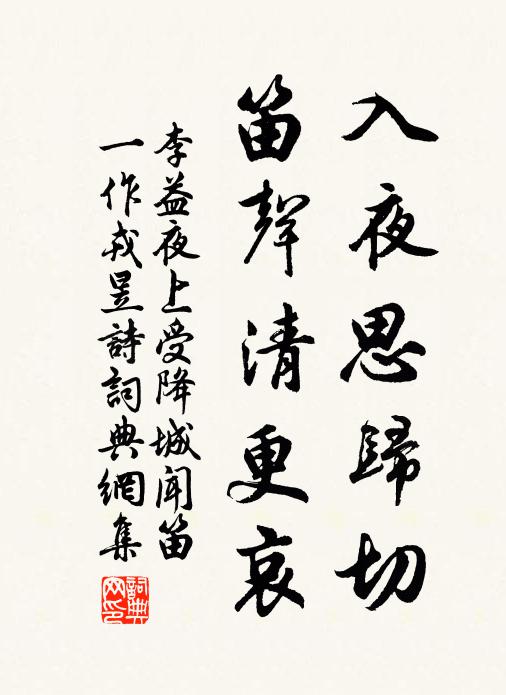 入夜思歸切
笛聲清更哀
李益夜上受降城聞笛
一作戎昱詩詞典網集
詞典
网印